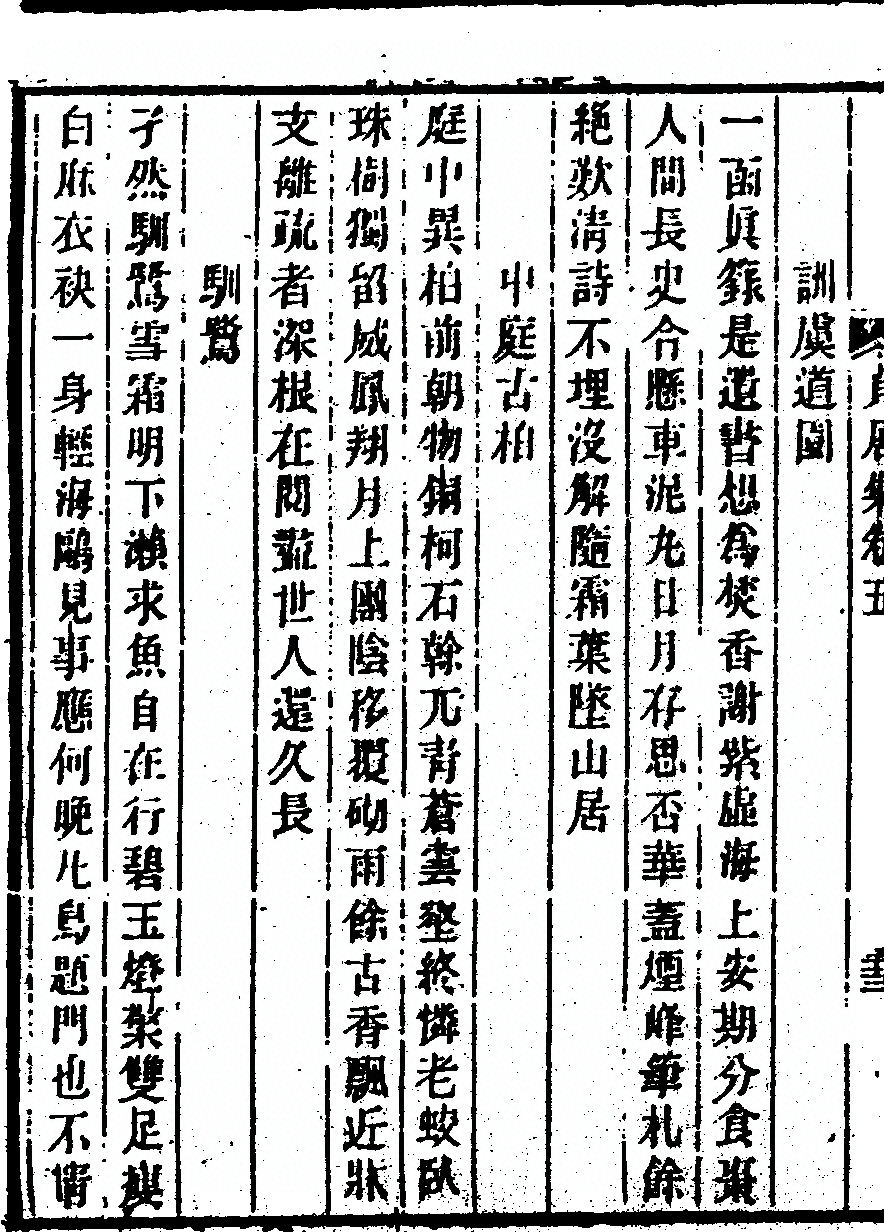 貞居集卷五
訓虞道園
一函眞籙是遺書想為焚香謝紫虛海上安期分食棗
人間長史合懸車泥丸日月存思否華蓋煙峰筆札餘
絶歎清詩不埋沒解隨霜葉墜山居
中庭古柏
庭中異柏前朝物銅柯石幹兀青蒼雲壑終憐老蛟臥
珠樹獨留威鳳翔月上團陰移砌雨餘古香飄近牀
支離疏者深根在閱世人還久長
馴鷺
孑然馴鷺雪霜明下瀨求魚自在行碧玉燈檠雙足
白麻衣袂一身輕海鷗見事應何晚凡鳥題門也不情